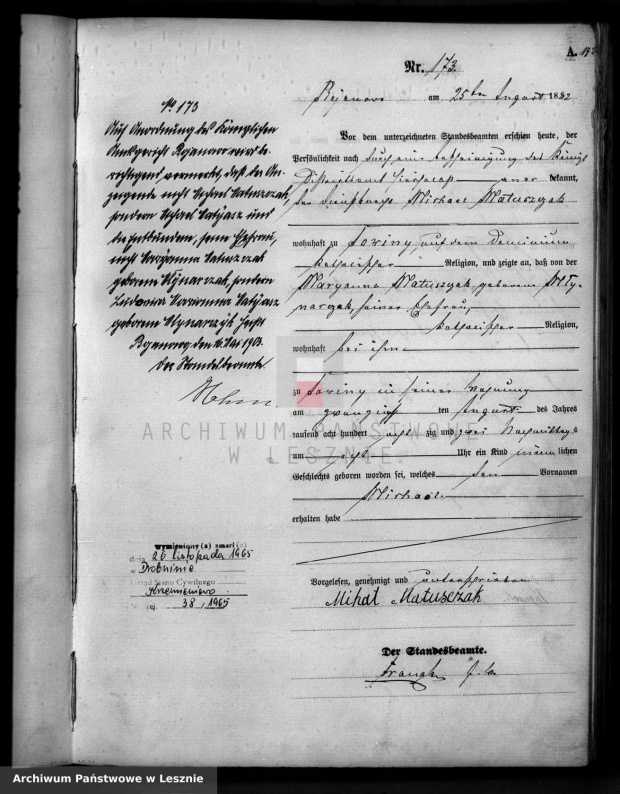 A. 173
Nr. 173.
am 25ten August 1882
Vor dem unterzeichneten Standesbeamten erschien heute, der
Persönlichkeit nach durch eine Bescheinigung des Königl
Districtsamt aner kannt,
der Michael Matuszczak
wohnhaft zu auf dem Dominium
katholischer Religion, und zeigte an, daß von der
Maryanna Matuszczak, geborene Mły-
narczak, seiner Ehefrau,
katholischer Religion,
wohnhaft bei ihm
zu in seiner Wohnung
am zwanzigsten August des Jahres
tausend acht hundert acht zig und zwei Nachmittags
um acht Uhr ein Kind männlichen
Geschlechts geboren worden sei, welches den Vornamen
Michael
erhalten habe
Vorgelesen, genehmigt und unterschrieben
Mihał Matusczak
Der Standesbeamte.
No 173
Auf Anordnung des Königlichen
Amtsgericht wird be-
richtigend vermerkt, daß der An-
zeigende nicht Matuszczak,
sondern und
die Entbundene, seine Ehefrau,
nicht Maryanna Matuszczak
geborene Mlynarczak, sondern
geborene Mlynarczyk heißt
Der Standesbeamte
wymieniony (a) zmarł (a)
dnia 26 listopada 1965
w Drobninie
Urząd Stanu Cywilnego
Krzemieniewo
38, 1965
ARCHIWUM PAŃSTWOWE
W LESZNIE
Archiwum Państwowe w Lesznie